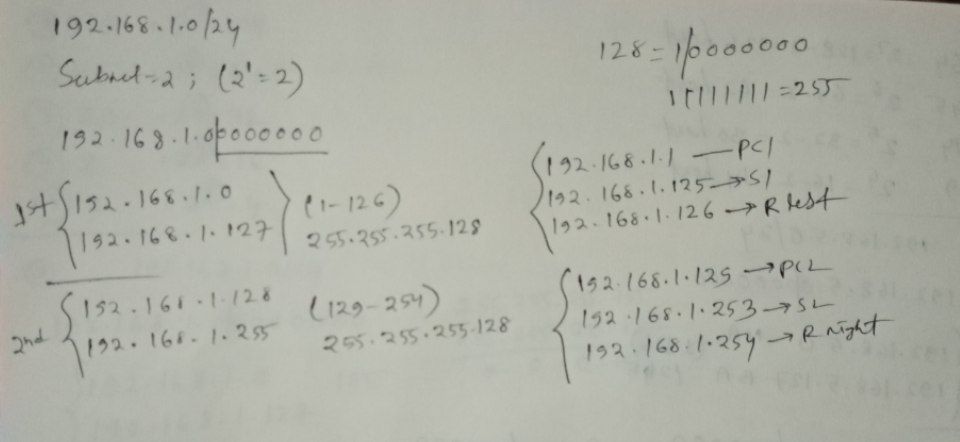 192.168.1.0/24
Subnet=2 ; (2¹=2)
192.168.1.00000000
1st
192.168.1.0
192.168.1.127
(1-126)
255.255.255.128
2nd
192.168.1.128
192.168.1.255
(129-254)
255.255.255.128
128=10000000
11111111=255
192.168.1.1 — PC1
192.168.1.125 → S1
192.168.1.126 → R
192.168.1.129 → PC2
192.168.1.253 → S2
192.168.1.254 → R right